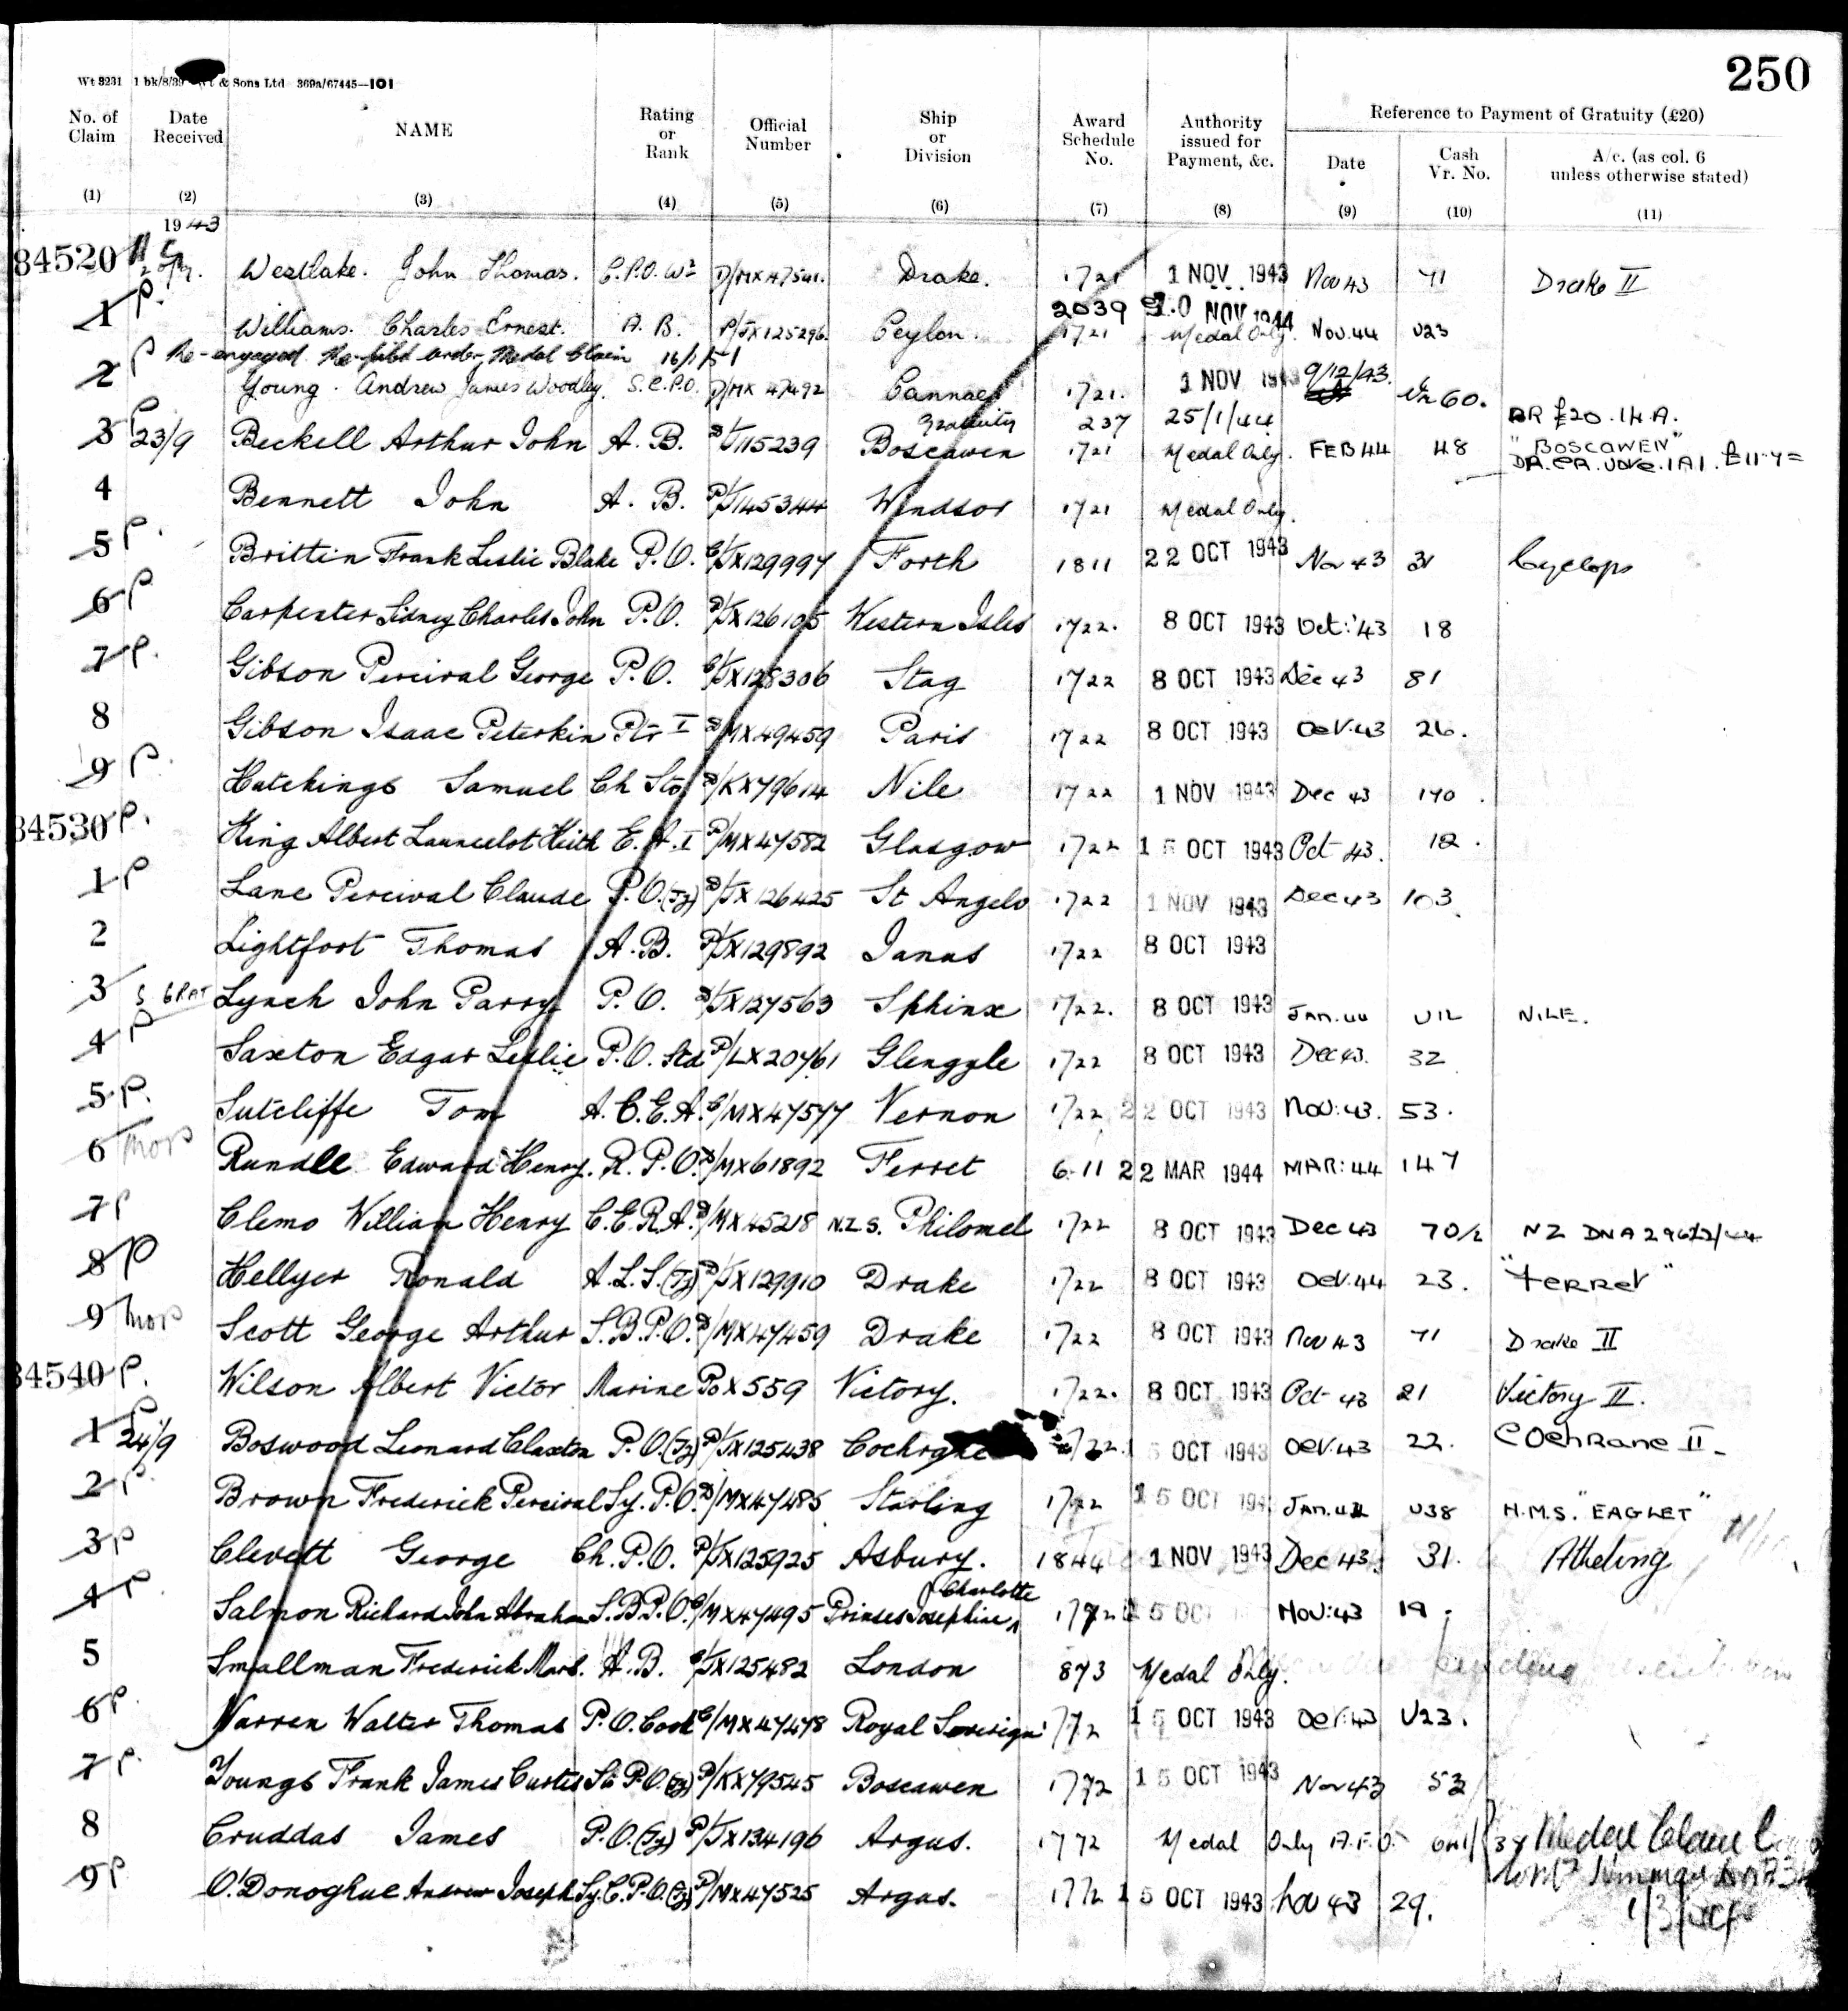 250
Wt 3231 1 bk/8/39 & Sons Ltd 369a/67445—101
No. of Claim Date Received NAME Rating or Rank Official Number Ship or Division Award Schedule No. Authority issued for Payment, &c. Reference to Payment of Gratuity (£20)
Date Cash Vr. No. A/c. (as col. 6 unless otherwise stated)
(1) (2) (3) (4) (5) (6) (7) (8) (9) (10) (11)
1943
84520 Westlake. John Thomas. C.P.O. Wr D/MX47541. Drake. 1721 1 NOV 1943 Nov 43 71 Drake II
2039 10 NOV 1944
1 P. Williams. Charles Ernest. A.B. P/JX125296. Ceylon. 1721 Medal Only. Nov. 44 U23
Re-engaged. Re-filed order, Medal Claim 16/1/51
2 P Young. Andrew James Woodley. S.C.P.O. D/MX 47492 Cannae 1721. 1 NOV 1943 9/12/43. Vr 60.
Gratuity 237 25/1/44 DR £20.14.A.
3 P 23/9 Beckell Arthur John A.B. D/J115239 Boscawen 1721 Medal Only. FEB 44 48 "BOSCAWEN"
4 Bennett John A.B. P/J145344 Windsor 1721 Medal Only.
5 P. Brittin Frank Leslie Blake P.O. C/JX129997 Forth 1811 22 OCT 1943 Nov 43 31 Cyclops
6 P Carpenter Sidney Charles John P.O. D/JX126105 Western Isles 1722. 8 OCT 1943 Oct: '43 18
7 P. Gibson Percival George P.O. C/JX128306 Stag 1722 8 OCT 1943 Dec 43 81
8 Gibson Isaac Peterkin Ptr I D/MX49459 Paris 1722 8 OCT 1943 Oct. 43 26.
9 P. Hutchings Samuel Ch Sto D/KX79614 Nile 1722 1 NOV 1943 Dec 43 170.
84530 P. King Albert Launcelot Keith E.A.I P/MX47582 Glasgow 1722 15 OCT 1943 Oct 43. 12.
1 P Lane Percival Claude P.O.(Ty) D/JX126425 St Angelo 1722 1 NOV 1943 Dec 43 103
2 Lightfoot Thomas A.B. P/JX129892 Janus 1722 8 OCT 1943
3 GRAT Lynch John Parry P.O. D/JX127563 Sphinx 1722. 8 OCT 1943 JAN. 44 U12 NILE.
4 P Saxton Edgar Leslie P.O. Std P/LX20761 Glengyle 1722 8 OCT 1943 Dec 43. 32
5 P. Sutcliffe Tom A.C.E.A. C/MX47577 Vernon 1722 22 OCT 1943 Nov: 43. 53.
6 Rundle Edward Henry. R.P.O. D/MX61892 Ferret 611 22 MAR 1944 MAR: 44 147
7 P Clemo William Henry C.E.R.A. D/MX45218 N.Z.S. Philomel 1722 8 OCT 1943 Dec 43 70/2 NZ DNA
8 P Hellyer Ronald A.L.S.(Ty) D/JX129910 Drake 1722 8 OCT 1943 Oct. 44 23. "Ferret"
9 Scott George Arthur S.B.P.O. D/MX47459 Drake 1722 8 OCT 1943 Nov 43 71 Drake II
84540 P. Wilson Albert Victor Marine Po X559 Victory. 1722. 8 OCT 1943 Oct 43 21 Victory II.
1 P 24/9 Boswood Leonard Claxton P.O.(Ty) P/JX125438 Cochrane 1722. 15 OCT 1943 Oct. 43 22. Cochrane II
2 P. Brown Frederick Percival Sy. P.O. D/MX47485 Starling 1772 15 OCT 1943 JAN. 44 U38 H.M.S. "EAGLET"
3 P Clevett George Ch. P.O. P/JX125925 Asbury. 1844 1 NOV 1943 Dec 43 31. Atheling
4 P. Salmon Richard John Abraham S.B.P.O. C/MX47495 Prinses Josephine Charlotte 1772 15 OCT Nov: 43 19.
5 Smallman Frederick Mark. A.B. C/JX125482 London 873 Medal Only.
6 P. Warren Walter Thomas P.O. Cook C/MX47478 Royal Sovereign 1772 15 OCT 1943 Oct: 43 U23.
7 P. Youngs Frank James Curtis Sto P.O.(Ty) P/KX79545 Boscawen 1772 15 OCT 1943 Nov 43 53
8 Cruddas James P.O.(Ty) P/JX134196 Argus. 1772 Medal Only A.F.O. Medal Claim
9 P O'Donoghue Andrew Joseph Sy. C.P.O.(Ty) P/MX47525 Argus. 1772 15 OCT 1943 Nov 43 29.